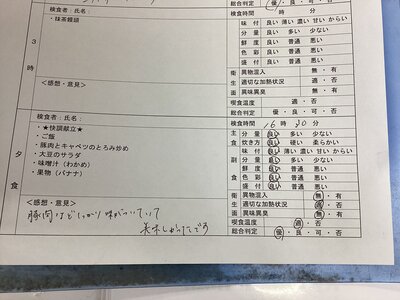 総合判定 優・良・可・否
検食者：氏名：
検食時間 時 分
・抹茶饅頭
味 付 良い 薄い 濃い 甘い からい
分 量 良い 多い 少ない
鮮 度 良い 普通 悪い
色 彩 良い 普通 悪い
盛 付 良い 普通 悪い
3時
衛生面 異物混入 無・有
適切な加熱状況 適・否
異味異臭 無・有
＜感想・意見＞
喫食温度 適・否
総合判定 優・良・可・否
検食者：氏名：
検食時間 16時 30分
・★快調献立★
・ご飯
・豚肉とキャベツのとろみ炒め
・大豆のサラダ
・味噌汁（わかめ）
・果物（バナナ）
主食 分 量 良い 多い 少ない
炊き方 良い 硬い 柔らかい
副食 味 付 良い 薄い 濃い 甘い からい
分 量 良い 多い 少ない
鮮 度 良い 普通 悪い
色 彩 良い 普通 悪い
盛 付 良い 普通 悪い
夕食
衛生面 異物混入 無・有
適切な加熱状況 適・否
異味異臭 無・有
＜感想・意見＞
豚肉はしっかり味がついていて
美味しかったです
喫食温度 適・否
総合判定 優・良・可・否